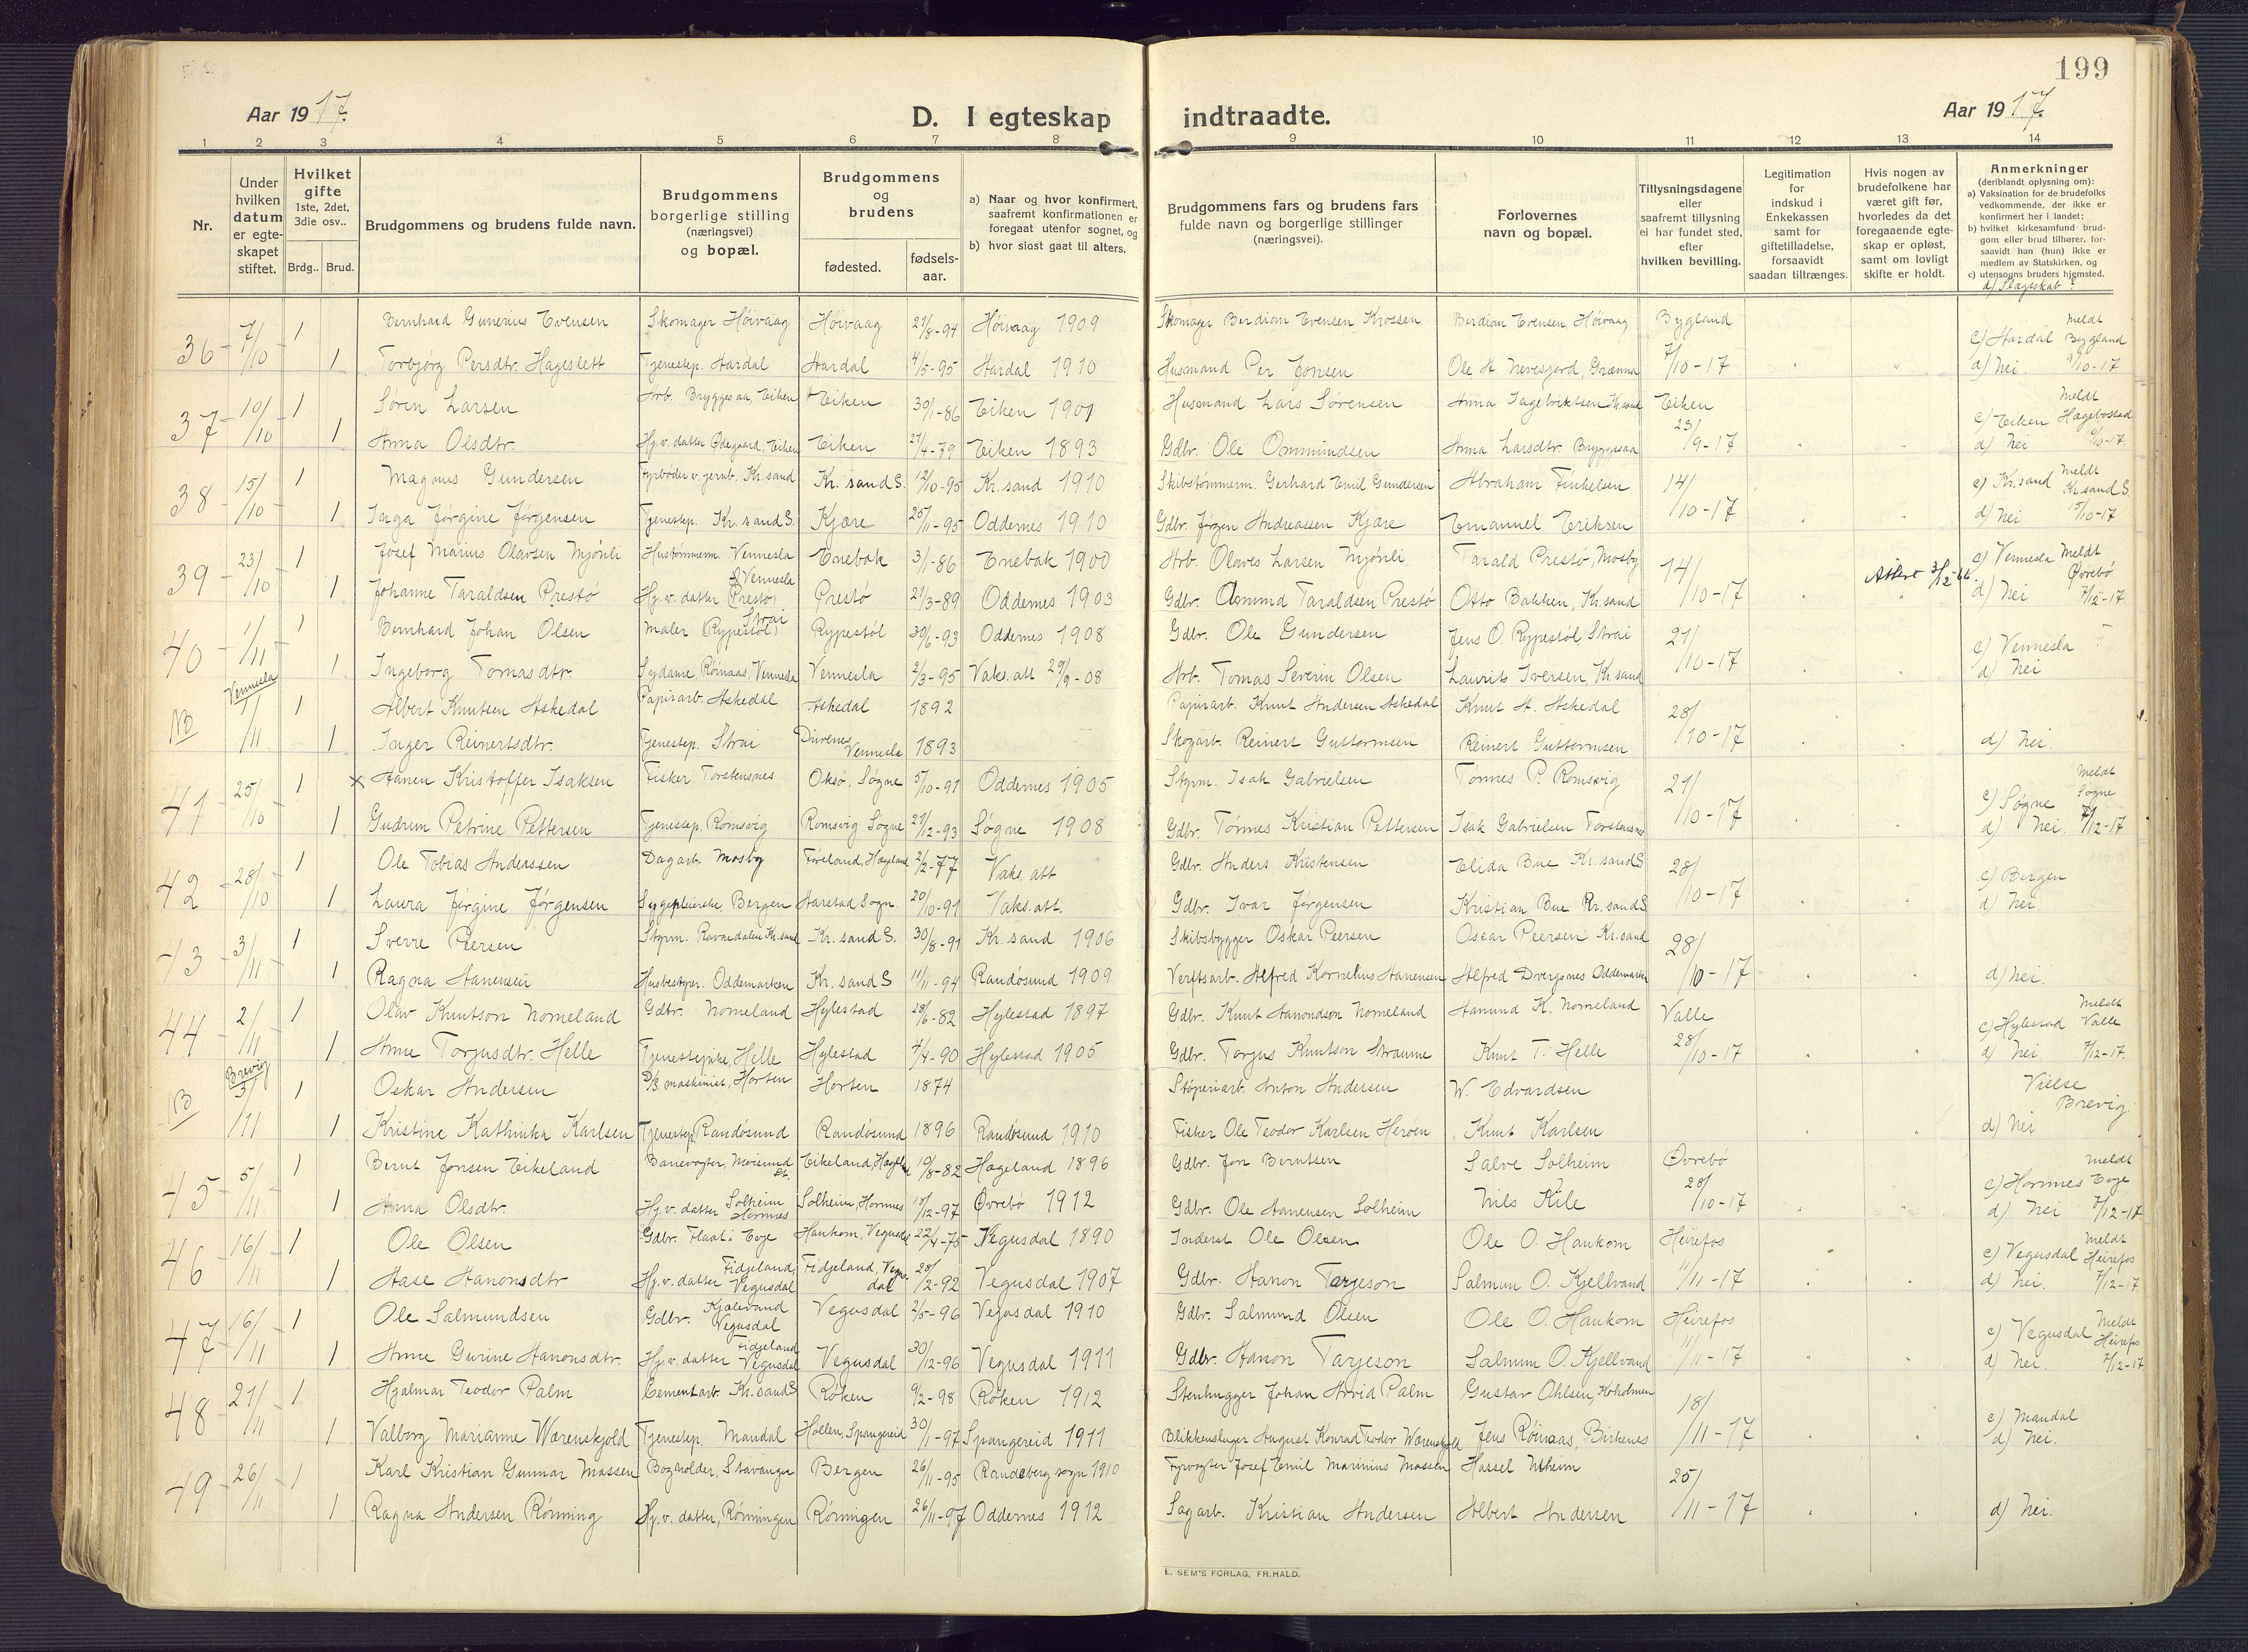 199
Aar 1917. D. I egteskap indtraadte. Aar 1917.
1 2 3 4 5 6 7 8 9 10 11 12 13 14
Nr.
Under hvilken datum er egteskapet stiftet.
Hvilket gifte 1ste, 2det, 3die osv..
Brdg.. Brud.
Brudgommens og brudens fulde navn.
Brudgommens borgerlige stilling (næringsvei) og bopæl.
Brudgommens og brudens
fødested. fødsels-aar.
a) Naar og hvor konfirmert, saafremt konfirmationen er foregaat utenfor sognet, og
b) hvor sidst gaat til alters.
Brudgommens fars og brudens fars fulde navn og borgerlige stillinger (næringsvei).
Forlovernes navn og bopæl.
Tillysningsdagene eller saafremt tillysning ei har fundet sted, efter hvilken bevilling.
Legitimation for indskud i Enkekassen samt for giftetilladelse, forsaavidt saadan tiltrænges.
Hvis nogen av brudefolkene har været gift før, hvorledes da det foregaaende egteskap er opløst, samt om lovligt skifte er holdt.
Anmerkninger (deriblandt oplysning om):
a) Vaksination for de brudefolks vedkommende, der ikke er konfirmert her i landet;
b) hvilket kirkesamfund brudgom eller brud tilhører, forsaavidt han (hun) ikke er medlem av Statskirken, og
c) utensogns bruders hjemsted.
d) Slagtskab?
36 7/10 1 Bernhard Gunerius Evensen Skomager Høivaag Høivaag 27/8-94 Høivaag 1909 Skomager Berdian Evensen Krossen Berdian Evensen Høivaag Bygland 7/10-17 c) Hardal meldt Bygland 9/10-17
1 Torbjørg Persdtr. Hageslett Tjenestep. Hardal Hardal 4/5-95 Hardal 1910 Husmand Per Jonsen Ole H. Nevesjord, Grænna d) Nei.
37 10/10 1 Søren Larsen Arb. Bryggesaa, Eiken Eiken 30/1-86 Eiken 1901 Husmand Lars Sørensen Anna Ingebriktsen Kr.sand Eiken 23/9-17 c) Eiken meldt Hægebostad
1 Anna Olsdtr. Hj. v. datter Ødegaard, Eiken Eiken 27/4-79 Eiken 1893 Gdbr. Ole Ommundsen Anna Larsdtr. Bryggesaa d) Nei
38 15/10 1 Magnus Gundersen Fyrbøder v. jernb. Kr.sand Kr. sand S. 12/10-95 Kr. sand 1910 Skibstømmerm. Gerhard Emil Gundersen Abraham Finkelsen 14/10-17 c) Kr. sand meldt Kr.sand S. 15/10-17
1 Inga Jørgine Jørgensen Tjenestep. Kr. sand S. Kjære 25/11-95 Oddernes 1910 Gdbr. Jørgen Andreassen Kjære Emanuel Eriksen d) Nei
39 23/10 1 Josef Marius Olavsen Mjønli Hustømmerm. Vennesla Enebak 3/1-86 Enebak 1900 Arb. Olaves Larsen Mjønli Tarald Prestø, Mosby 14/10-17 Attest 3/12-66. c) Vennesla meldt Øvrebø 7/12-17
1 Johanne Taraldsen Prestø Hj. v. datter Prestø, Vennesla Prestø 21/3-89 Oddernes 1903 Gdbr. Amund Taraldsen Prestø Otto Bakken, Kr.sand d) Nei
40 1/11 1 Bernhard Johan Olsen Maler Rypestøl, Strai Rypestøl 30/6-93 Oddernes 1908 Gdbr. Ole Gundersen Jens O. Rypestøl, Strai 21/10-17 c) Vennesla
1 Ingeborg Tomasdtr. Sydame, Rømaas, Vennesla Vennesla 2/3-95 Vaks. att 29/9-08 Arb. Tomas Severin Olsen Laurits Iversen, Kr.sand d) Nei
NB Vennesla 1/11 1 Albert Knutsen Askedal Papirarb. Askedal Askedal 1892 Papirarb. Knut Andersen Askedal Knut A. Askedal 28/10-17
1 Inger Reinertsdtr. Tjenestep. Strai Drivenes, Vennesla 1893 Skogarb. Reinert Guttormsen Reinert Guttormsen d) Nei
41 25/10 1 × Hanen Kristoffer Isaksen Fisker Torstensnes Oksø, Søgne 5/10-91 Oddernes 1905 Styrm. Isak Gabrielsen Tønnes P. Romsvig 21/10-17 c) Søgne meldt Søgne 7/12-17
1 Gudrun Petrine Pettersen Tjenestep. Romsvig Romsvig Søgne 27/12-93 Søgne 1908 Gdbr. Tønnes Kristian Pettersen Isak Gabrielsen Torstensnes d) Nei.
42 28/10 1 Ole Tobias Anderssen Dagarb. Mosby Føreland, Hægeland 2/2-77 Vaks. att Gdbr. Anders Kristensen Elida Bue Kr.sand S 28/10-17 c) Bergen
1 Laura Jørgine Jørgensen Sygepleierske, Bergen Harstad Sogn. 20/10-91 Vaks. att. Gdbr. Ivar Jørgensen Kristian Bue Kr.sand S. d) Nei
43 3/11 1 Sverre Peersen Styrm. Ravnedalen Kr.sand Kr. sand S. 30/8-91 Kr. sand 1906 Skibsbygger Oskar Peersen Oscar Peersen Kr.sand 28/10-17
1 Ragna Hanensen Husbestyrer. Oddemarken Kr. sand S 11/11-94 Randøsund 1909 Verftsarb. Alfred Kornelius Hanensen Alfred Dvergsnes Oddemarken d) Nei.
44 2/11 1 Olav Knutson Nomeland Gdbr. Nomeland Hylestad 28/6-82 Hylestad 1897 Gdbr. Knut Aanondson Nomeland Aanund K. Nomeland Valle 28/10-17 c) Hylestad meldt Valle 7/12-17.
1 Anne Torjusdtr. Helle Tjenestepike, Helle Hylestad 4/4-90 Hylestad 1905 Gdbr. Torjus Knutson Straume Knut T. Helle d) Nei.
NB Brevig 3/11 1 Oskar Andersen D/S maskinist, Horten Horten 1874 Støperiarb. Anton Andersen W. Edvardsen Vielse Brevig
1 Kristine Kathinka Karlsen Tjenestep. Randøsund Randøsund 1896 Randøsund 1910 Fisker Ole Teodor Karlsen Herøen Knut Karlsen d) Nei
45 5/11 1 Bernt Jonsen Eikeland Banevogter, Moisund St. Eikeland, Hægeland 10/8-82 Hægeland 1896 Gdbr. Jon Berntsen Salve Solheim Øvrebø 28/10-17 c) Hornnes meldt Evje 7/12-17
1 Anna Olsdtr. Hj. v. datter Solheim Hornnes Solheim, Hornnes 18/12-97 Øvrebø 1912 Gdbr. Ole Hanensen Solheim Nils Kile d) Nei
46 16/11 1 Ole Olsen Gdbr. Flaat i Evje Haukom, Vegusdal 22/4-75 Vegusdal 1890 Inderst Ole Olsen Ole O. Haukom Heirefos 11/11-17 c) Vegusdal meldt Heirefos 7/12-17.
1 Aase Hanonsdtr Hj. v. datter Fidjeland, Vegusdal Fidjeland, Vegusdal 28/2-92 Vegusdal 1907 Gdbr. Hanon Tarjeson Salmun O. Kjellvand d) Nei.
47 16/11 1 Ole Salmundsen Gdbr. Kjælevand Vegusdal Vegusdal 2/5-96 Vegusdal 1910 Gdbr. Salmund Olsen Ole O. Haukom Heirefos 11/11-17 c) Vegusdal meldt Heirefos 7/12-17
1 Anne Gurine Hanonsdtr. Hj. v. datter Fidjeland Vegusdal Vegusdal 30/12-96 Vegusdal 1911 Gdbr. Hanon Tarjeson Salmun O. Kjellvand d) Nei.
48 21/11 1 Hjalmar Teodor Palm Cementarb. Kr.sand S Røken 9/2-98 Røken 1912 Stenhugger Johan Arvid Palm Gustav Ohlsen, Koholmen 18/11-17 c) Mandal
1 Valborg Marianne Wærenskjold Tjenestep. Mandal Hollen, Spangereid 30/1-97 Spangereid 1911 Blikkenslager August Konrad Teodor Wærenskjold Jens Rømaas, Birkenes d) Nei.
49 26/11 1 Karl Kristian Gunnar Mossen Bogholder, Stavanger Bergen 26/11-95 Randeberg sogn 1910 Fyrvogter Josef Emil Marinius Mossen Hassel Utheim 25/11-17
1 Ragna Andersen Rønning Hj. v. datter, Rønningen Rønningen 26/11-97 Oddernes 1912 Sagarb. Kristian Andersen Albert Andersen d) Nei.
E. SEM'S FORLAG, FR.HALD.